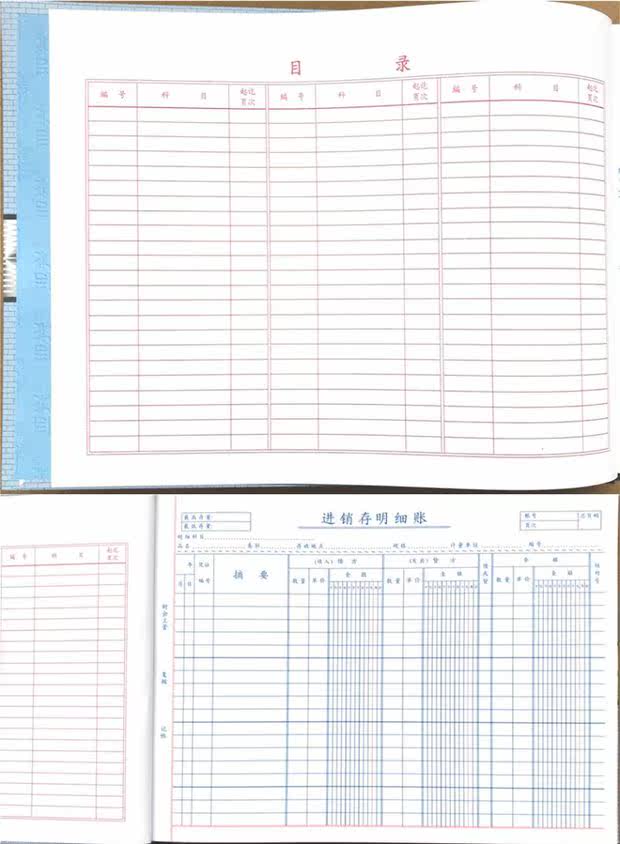 目 录
编 号 科 目 起讫页次 编 号 科 目 起讫页次 编 号 科 目 起讫页次
编 号 科 目 起讫页次
最高存量:
最低存量:
进销存明细账
帐号
页次
总页码
明细科目
品名 类别 存放地点 规格 计量单位 编号
年 凭证编号 摘 要 (收入) 借 方 (发出) 贷 方 借或贷 余 额 核对号
月 日 数量 单价 金 额 数量 单价 金 额 数量 单价 金 额
财会主管
复核
记帐